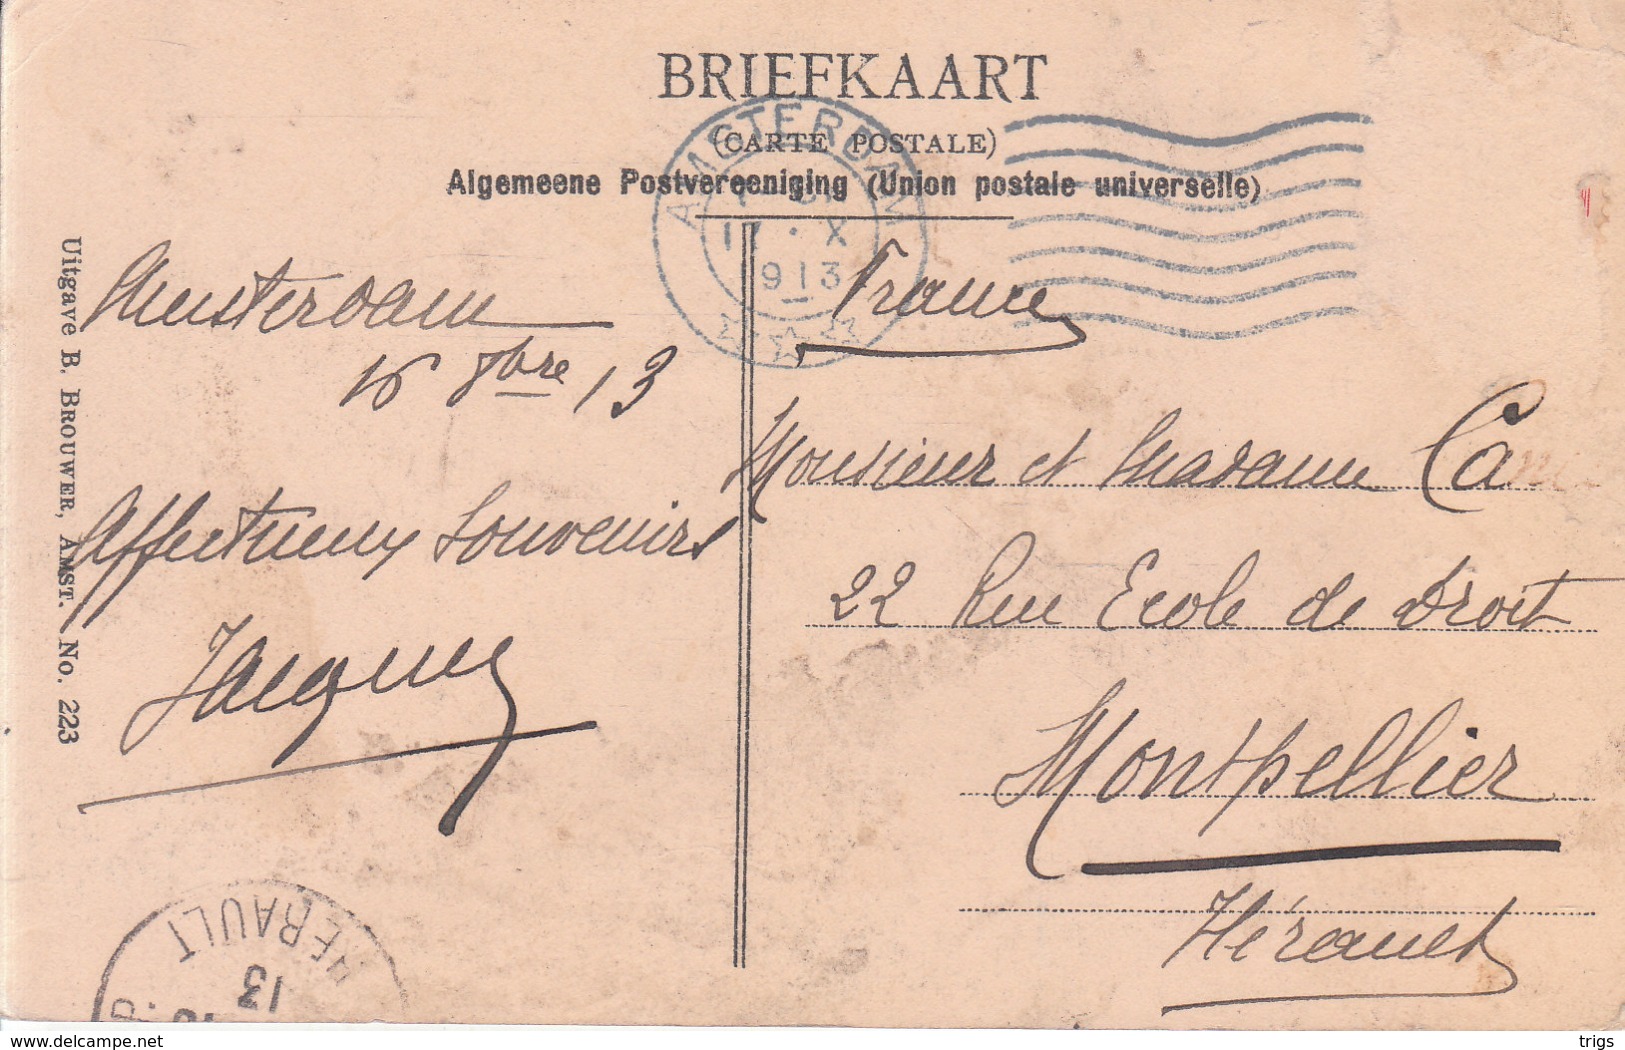 BRIEFKAART
(CARTE POSTALE)
Algemeene Postvereeniging (Union postale universelle)
AMSTERDAM
X
1913
Uitgave B. BROUWER, AMST. No. 223
Amsterdam
16 8bre 13
Affectueux Souvenirs
Jacques
France
Monsieur et Madame Ca
22 Rue Ecole de Droit
Montpellier
Hérault
HERAULT
13
delcampe.net
trigs